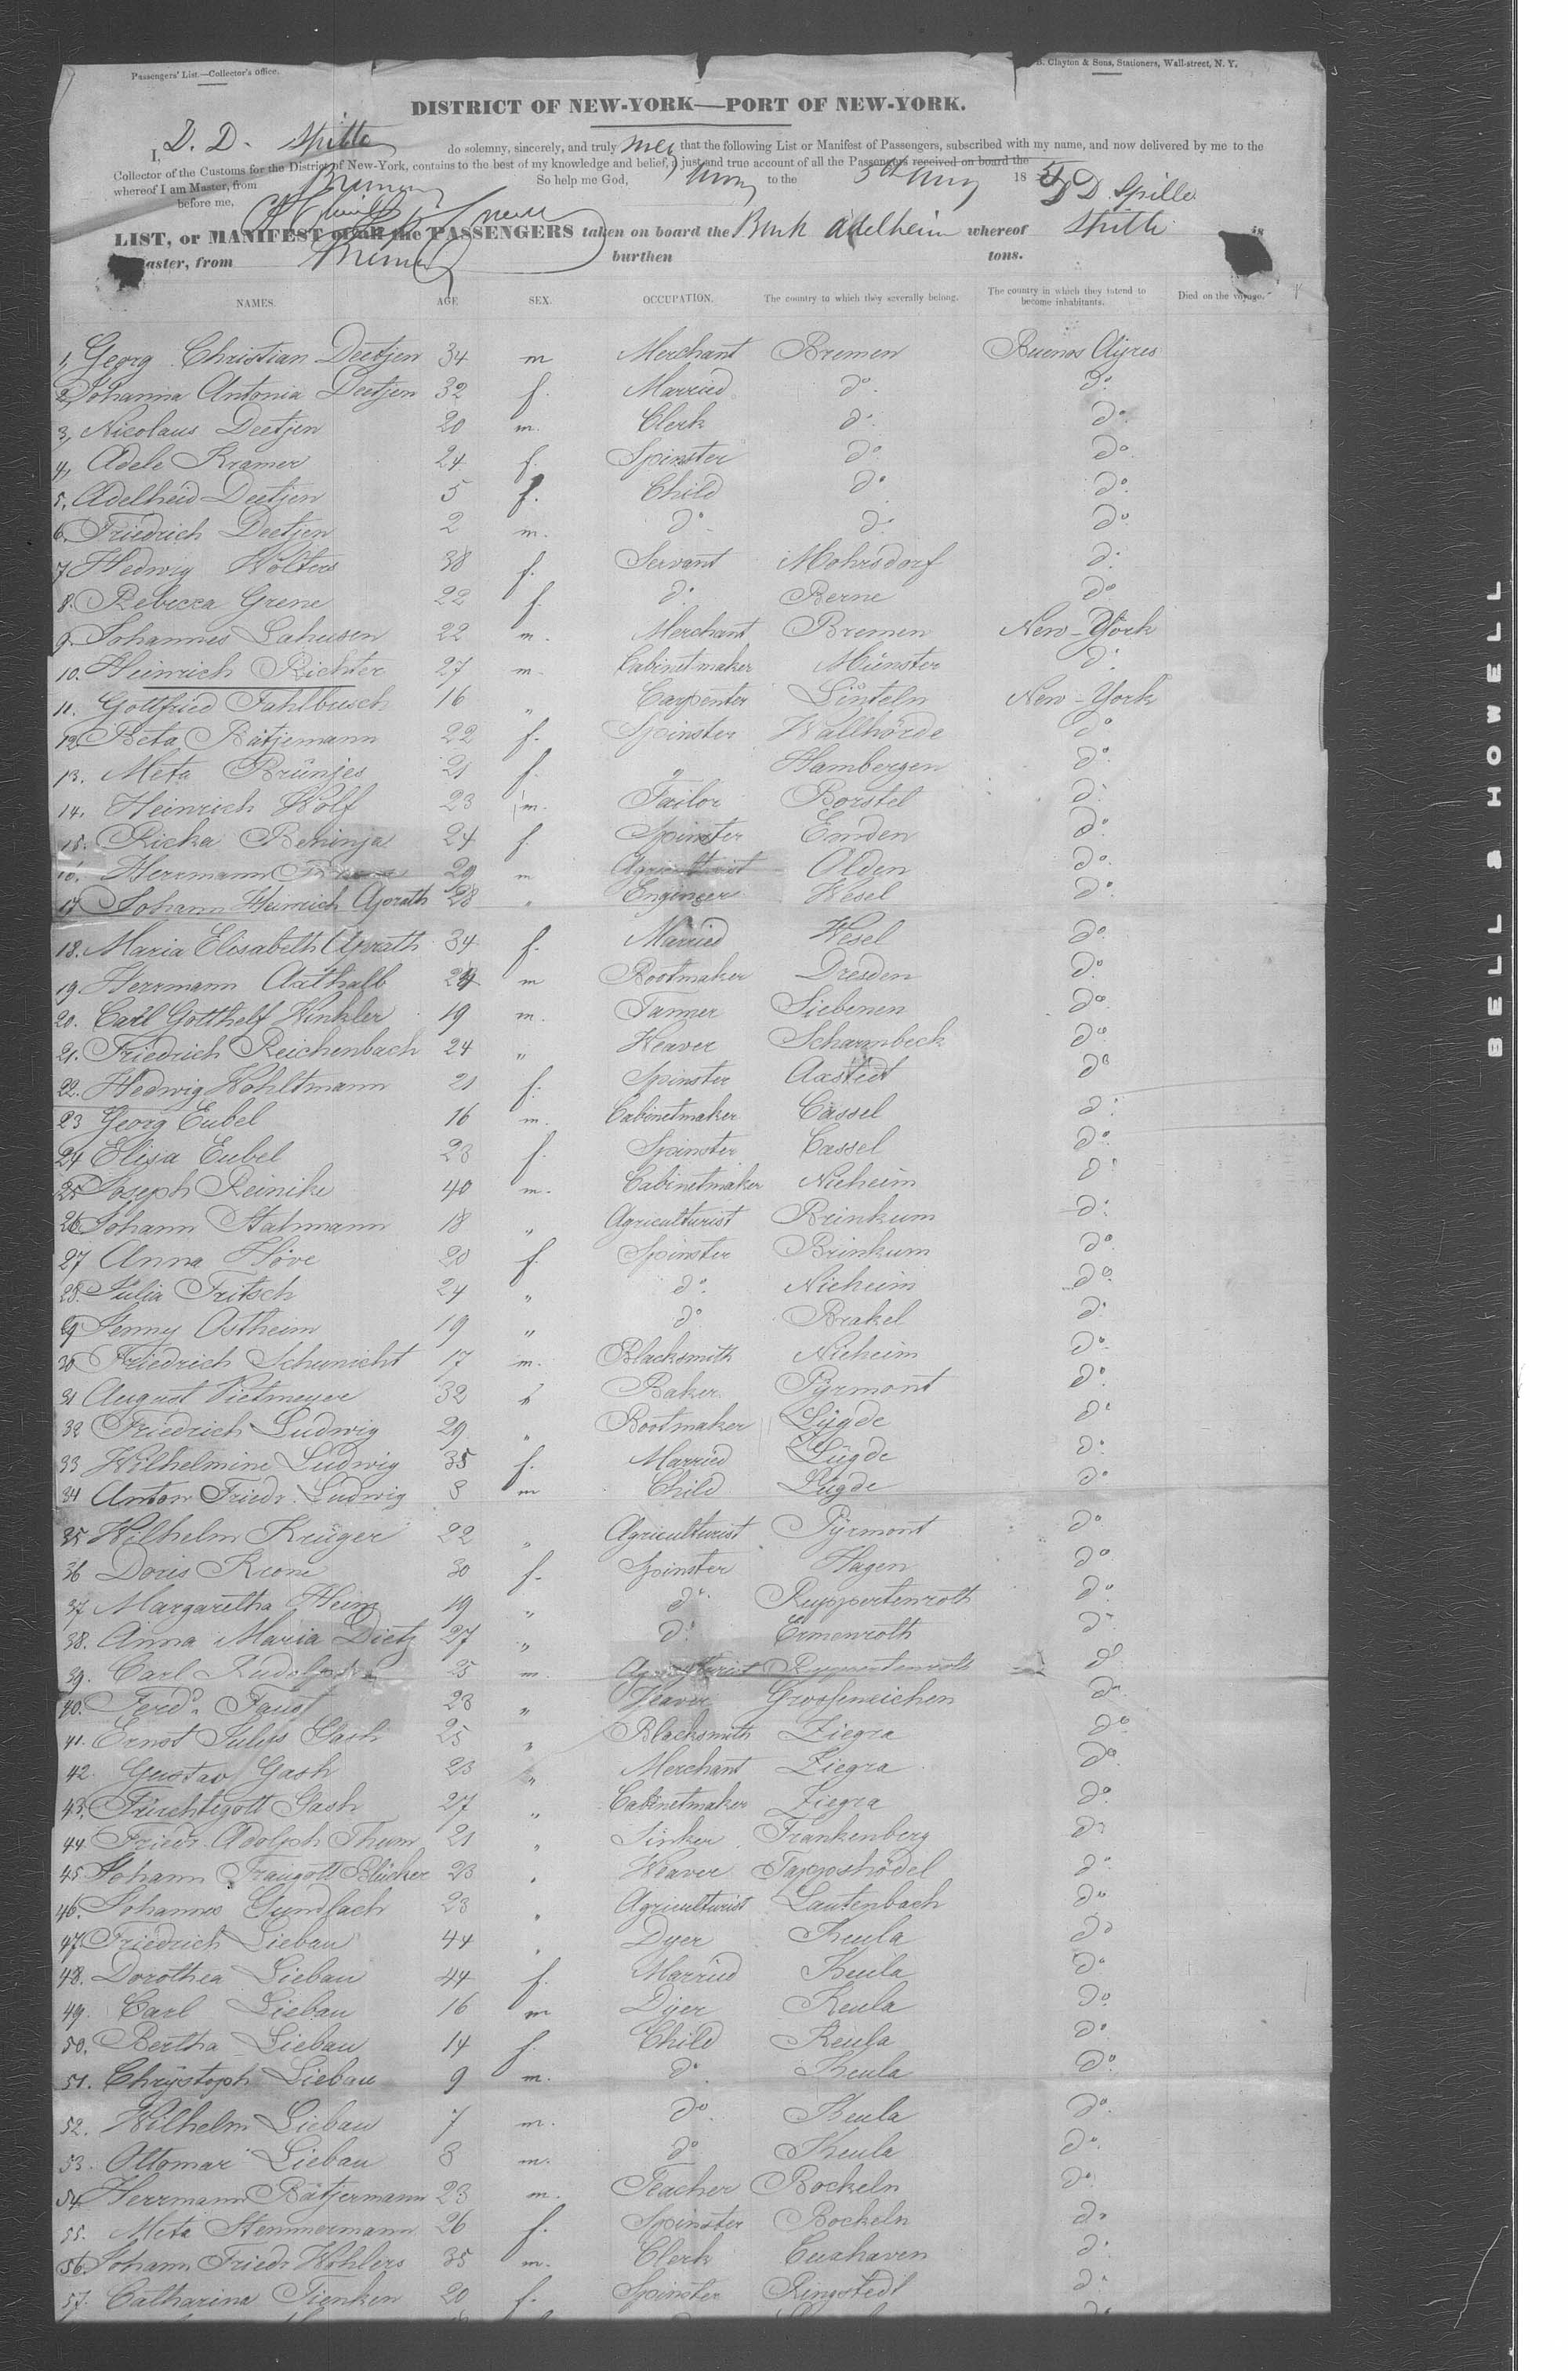 Passengers' List.—Collector's Office.
B. Clayton & Sons, Stationers, Wall-street, N. Y.
DISTRICT OF NEW-YORK—PORT OF NEW-YORK.
I, D. D. Spille do solemny, sincerely, and truly that the following List or Manifest of Passengers, subscribed with my name, and now delivered by me to the
Collector of the Customs for the District of New-York, contains to the best of my knowledge and belief, a just and true account of all the Passengers received on board the
whereof I am Master, from Bremen So help me God, to the 18 D D Spille
before me,
LIST, or MANIFEST of all the PASSENGERS taken on board the Bark Adelheim whereof Spille is
Master, from Bremen burthen tons.
NAMES. AGE SEX. OCCUPATION. The country to which they severally belong. The country in which they intend to become inhabitants. Died on the voyage.
1, Georg Christian Deetjen 34 m Merchant Bremen Buenos Ayres
2, Johanna Antonia Deetjen 32 f. Married do. do.
3, Nicolaus Deetjen 20 m. Clerk do. do.
4, Adele Kramer 24 f. Spinster do. do.
5. Adelheid Deetjen 5 f. Child do do.
6. Friedrich Deetjen 2 m. do. do. do.
7 Hedwig Wolters 38 f. Servant Mohrsdorf do.
8. Rebecca Grene 22 f. do. Berne do
9. Johannes Lahusen 22 m. Merchant Bremen New-York
10. Heinrich Richter 27 m. Cabinetmaker Münster do.
11. Gottfried Fahlbusch 16 " Carpenter Linteln New-York
12. Beta Bätjemann 22 f. Spinster Wallhörde do
13. Meta Brünjes 21 f. " Hambergen do.
14. Heinrich Wolf 23 m. Tailor Borstel do.
15. Ricka Beninja 24 f. Spinster Emden do.
16. Herrmann 29 m Agriculturist Olden do.
17 Johann Heinrich Aprath 28 " Engineer Wesel do.
18. Maria Elisabeth Aprath 34 f. Married Wesel do.
19. Herrmann Axthalb 24 m Bootmaker Dresden do.
20. Carl Gotthelf Winkler 19 m. Tanner Siebenen do.
21. Friedrich Reichenbach 24 " Weaver Scharmbeck do
22. Hedwig Wohltmann 21 f. Spinster Axstedt do
23 Georg Eubel 16 m. Cabinetmaker Cassel do.
24 Elisa Eubel 23 f. Spinster Cassel do.
25 Joseph Reinike 40 m. Cabinetmaker Nieheim do.
26 Johann Stahmann 18 " Agriculturist Brinkum do.
27 Anna Höve 20 f. Spinster Brinkum do.
28. Julia Fritsch 24 " do. Nieheim do.
29 Jenny Ostheim 19 " do Brakel do.
30 Friedrich Schunicht 17 m. Blacksmith Nieheim do.
31 August Vietmeyer 32 " Baker Pyrmont do.
32 Friedrich Ludwig 29 " Bootmaker Lügde do.
33 Wilhelmine Ludwig 35 f. Married Lügde do.
34 Anton Friedr. Ludwig 3 m Child Lügde do
35 Wilhelm Krüger 22 " Agriculturist Pyrmont do
36 Doris Krone 30 f. Spinster Hagen do.
37 Margaretha Heim 19 " do. Ruppertenroth do.
38. Anna Maria Dietz 27 " do. Ermenroth do
39. Carl Rudolph 25 m. Agriculturist Ruppertenroth do
40. Ferdo. Faust 23 " Weaver Grosseneichen do.
41. Ernst Julius Gash 25 " Blacksmith Ziegra do
42. Gustav Gash 23 " Merchant Ziegra do
43. Fürchtegott Gash 27 " Cabinetmaker Ziegra do
44. Friedr. Adolph Thum 21 " Sinker Frankenberg do
45 Johann Traugott Blücker 23 " Weaver Tappshödel do
46. Johannes Gundlach 23 " Agriculturist Lautenbach do
47. Friedrich Liebau 44 " Dyer Keula do
48. Dorothea Liebau 44 f. Married Keula do
49. Carl Liebau 16 m Dyer Keula do
50. Bertha Liebau 14 f. Child Keula do.
51. Chrystoph Liebau 9 m. do. Keula do.
52. Wilhelm Liebau 7 m. do. Keula do.
53. Ottomar Liebau 3 m. do Keula do.
54 Herrmann Bätjermann 23 m. Teacher Bockeln do.
55. Meta Stemmermann 26 f. Spinster Bockeln do
56. Johann Friedr Wohlers 35 m. Clerk Cuxhaven do.
57. Catharina Tienken 20 f. Spinster Ringstedt do.
BELL & HOWELL